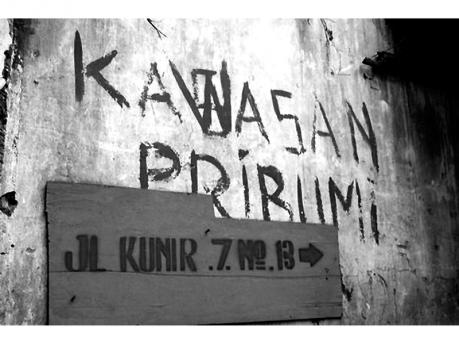 KAWASAN
PRIBUMI
JL KUNIR .7. No. 13 →